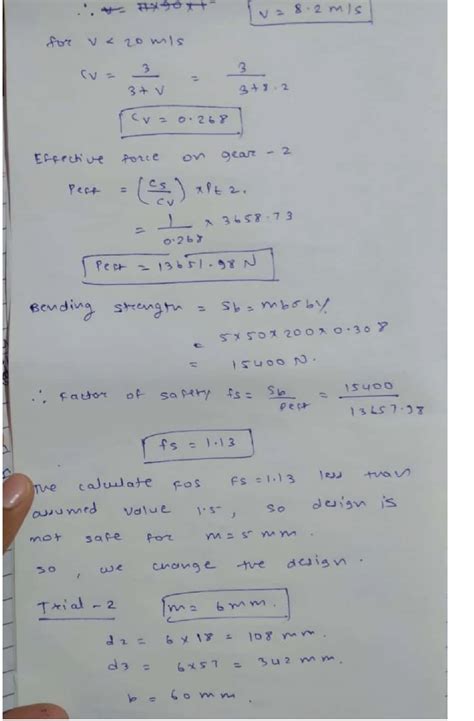 ∴ v = π×50×
v = 8.2 m/s
for v < 20 m/s
Cv = 3/(3+v) = 3/(3+8.2)
Cv = 0.268
Effective force on gear - 2
Peff = (Cs/Cv) × Pt2.
= 1/0.268 × 3658.73
Peff = 13651.98 N
Bending strength = Sb = mbσbY
= 5×50×200×0.308
= 15400 N.
∴ Factor of safety fs = Sb/Peff = 15400/13657.98
fs = 1.13
The calculate FOS FS = 1.13 less than
assumed value 1.5, so design is
not safe for m = 5 mm.
so, we change the design.
Trial - 2 m = 6 mm.
d2 = 6 × 18 = 108 mm.
d3 = 6×57 = 342 mm.
b = 60 mm.